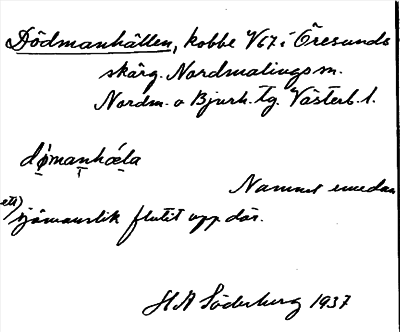 Dödmanhällen, kobbe V67 i Öresunds
skärg. Nordmalings sn.
Nordm. o Bjurh. tg. Västerb. l.
dø̀manhæ̀la
Namnet emedan
ett) sjömanslik flutit upp där.
H A Söderberg 1937